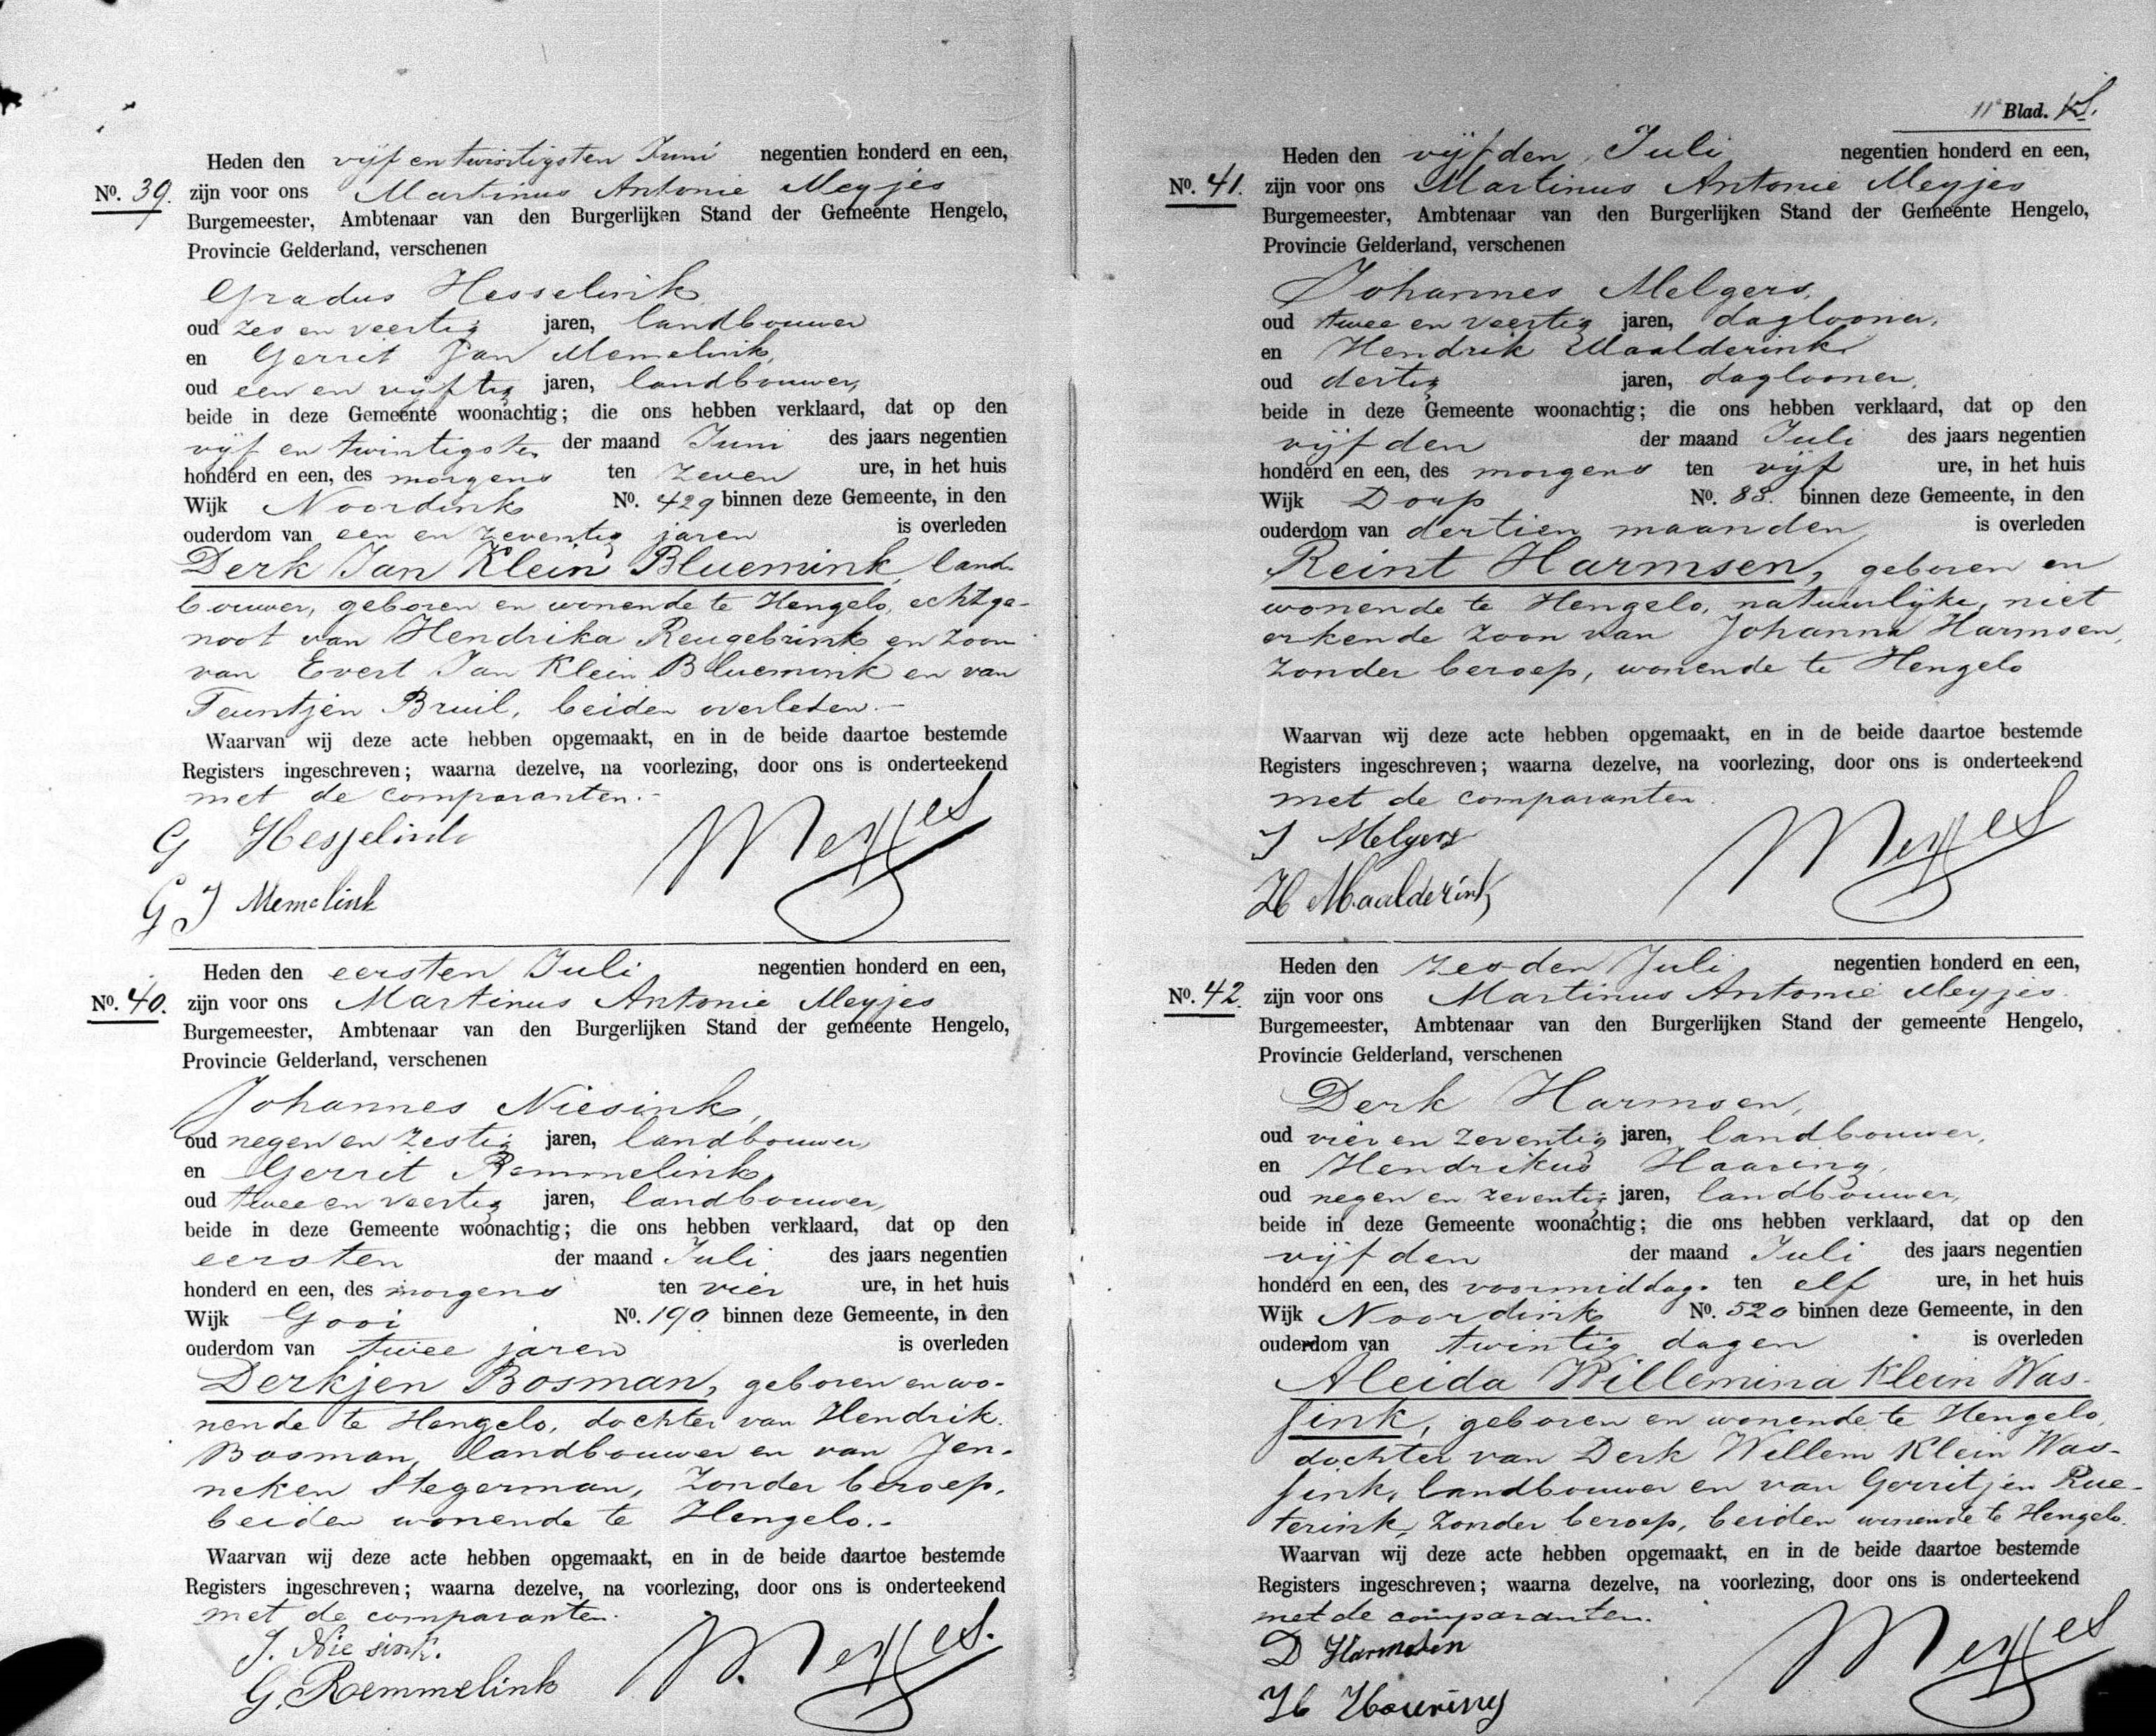 Heden den vijf en twintigsten Juni negentien honderd en een,
No. 39. zijn voor ons Martinus Antonie Meyjes
Burgemeester, Ambtenaar van den Burgerlijken Stand der Gemeente Hengelo,
Provincie Gelderland, verschenen
Gradus Hesselink,
oud zes en veertig jaren, landbouwer
en Gerrit Jan Memelink,
oud een en vijftig jaren, landbouwer,
beide in deze Gemeente woonachtig; die ons hebben verklaard, dat op den
vijf en twintigsten der maand Juni des jaars negentien
honderd en een, des morgens ten zeven ure, in het huis
Wijk Noordink No. 429 binnen deze Gemeente, in den
ouderdom van een en zeventig jaren is overleden
Derk Jan Klein Bluemink, land-
bouwer, geboren en wonende te Hengelo, echtge-
noot van Hendrika Reugebrink en zoon
van Evert Jan Klein Bluemink en van
Teuntjen Bruil, beiden overleden.-
Waarvan wij deze acte hebben opgemaakt, en in de beide daartoe bestemde
Registers ingeschreven; waarna dezelve, na voorlezing, door ons is onderteekend
met de comparanten.-
G Hesselink
Meyjes
G J Memelink
Heden den eersten Juli negentien honderd en een,
No. 40. zijn voor ons Martinus Antonie Meyjes
Burgemeester, Ambtenaar van den Burgerlijken Stand der gemeente Hengelo,
Provincie Gelderland, verschenen
Johannes Niesink,
oud negen en zestig jaren, landbouwer,
en Gerrit Remmelink,
oud twee en veertig jaren, landbouwer,
beide in deze Gemeente woonachtig; die ons hebben verklaard, dat op den
eersten der maand Juli des jaars negentien
honderd en een, des morgens ten vier ure, in het huis
Wijk Gooi No. 190 binnen deze Gemeente, in den
ouderdom van twee jaren is overleden
Derkjen Bosman, geboren en wo-
nende te Hengelo, dochter van Hendrik
Bosman, landbouwer en van Jen-
neken Stegerman, zonder beroep,
beiden wonende te Hengelo.-
Waarvan wij deze acte hebben opgemaakt, en in de beide daartoe bestemde
Registers ingeschreven; waarna dezelve, na voorlezing, door ons is onderteekend
met de comparanten.
J. Niesink.
Meyjes.
G. Remmelink
11e Blad.
Heden den vijfden Juli negentien honderd en een,
No. 41. zijn voor ons Martinus Antonie Meyjes
Burgemeester, Ambtenaar van den Burgerlijken Stand der Gemeente Hengelo,
Provincie Gelderland, verschenen
Johannes Melgers,
oud twee en veertig jaren, daglooner,
en Hendrik Maalderink
oud dertig jaren, daglooner,
beide in deze Gemeente woonachtig; die ons hebben verklaard, dat op den
vijfden der maand Juli des jaars negentien
honderd en een, des morgens ten vijf ure, in het huis
Wijk Dorp No. 83. binnen deze Gemeente, in den
ouderdom van dertien maanden is overleden
Reint Harmsen, geboren en
wonende te Hengelo, natuurlijke, niet
erkende zoon van Johanna Harmsen,
zonder beroep, wonende te Hengelo
Waarvan wij deze acte hebben opgemaakt, en in de beide daartoe bestemde
Registers ingeschreven; waarna dezelve, na voorlezing, door ons is onderteekend
met de comparanten.
J Melgers
Meyjes
H Maalderink
Heden den zesden Juli negentien honderd en een,
No. 42. zijn voor ons Martinus Antonie Meyjes
Burgemeester, Ambtenaar van den Burgerlijken Stand der gemeente Hengelo,
Provincie Gelderland, verschenen
Derk Harmsen,
oud vier en zeventig jaren, landbouwer,
en Hendrikus Haaring,
oud negen en zeventig jaren, landbouwer,
beide in deze Gemeente woonachtig; die ons hebben verklaard, dat op den
vijfden der maand Juli des jaars negentien
honderd en een, des voormiddags ten elf ure, in het huis
Wijk Noordink No. 520 binnen deze Gemeente, in den
ouderdom van twintig dagen is overleden
Aleida Willemina Klein Was-
sink, geboren en wonende te Hengelo,
dochter van Derk Willem Klein Was-
sink, landbouwer en van Gerritjen Rue-
terink, zonder beroep, beiden wonende te Hengelo.
Waarvan wij deze acte hebben opgemaakt, en in de beide daartoe bestemde
Registers ingeschreven; waarna dezelve, na voorlezing, door ons is onderteekend
met de comparanten.
D Harmsen
Meyjes
H Haaring